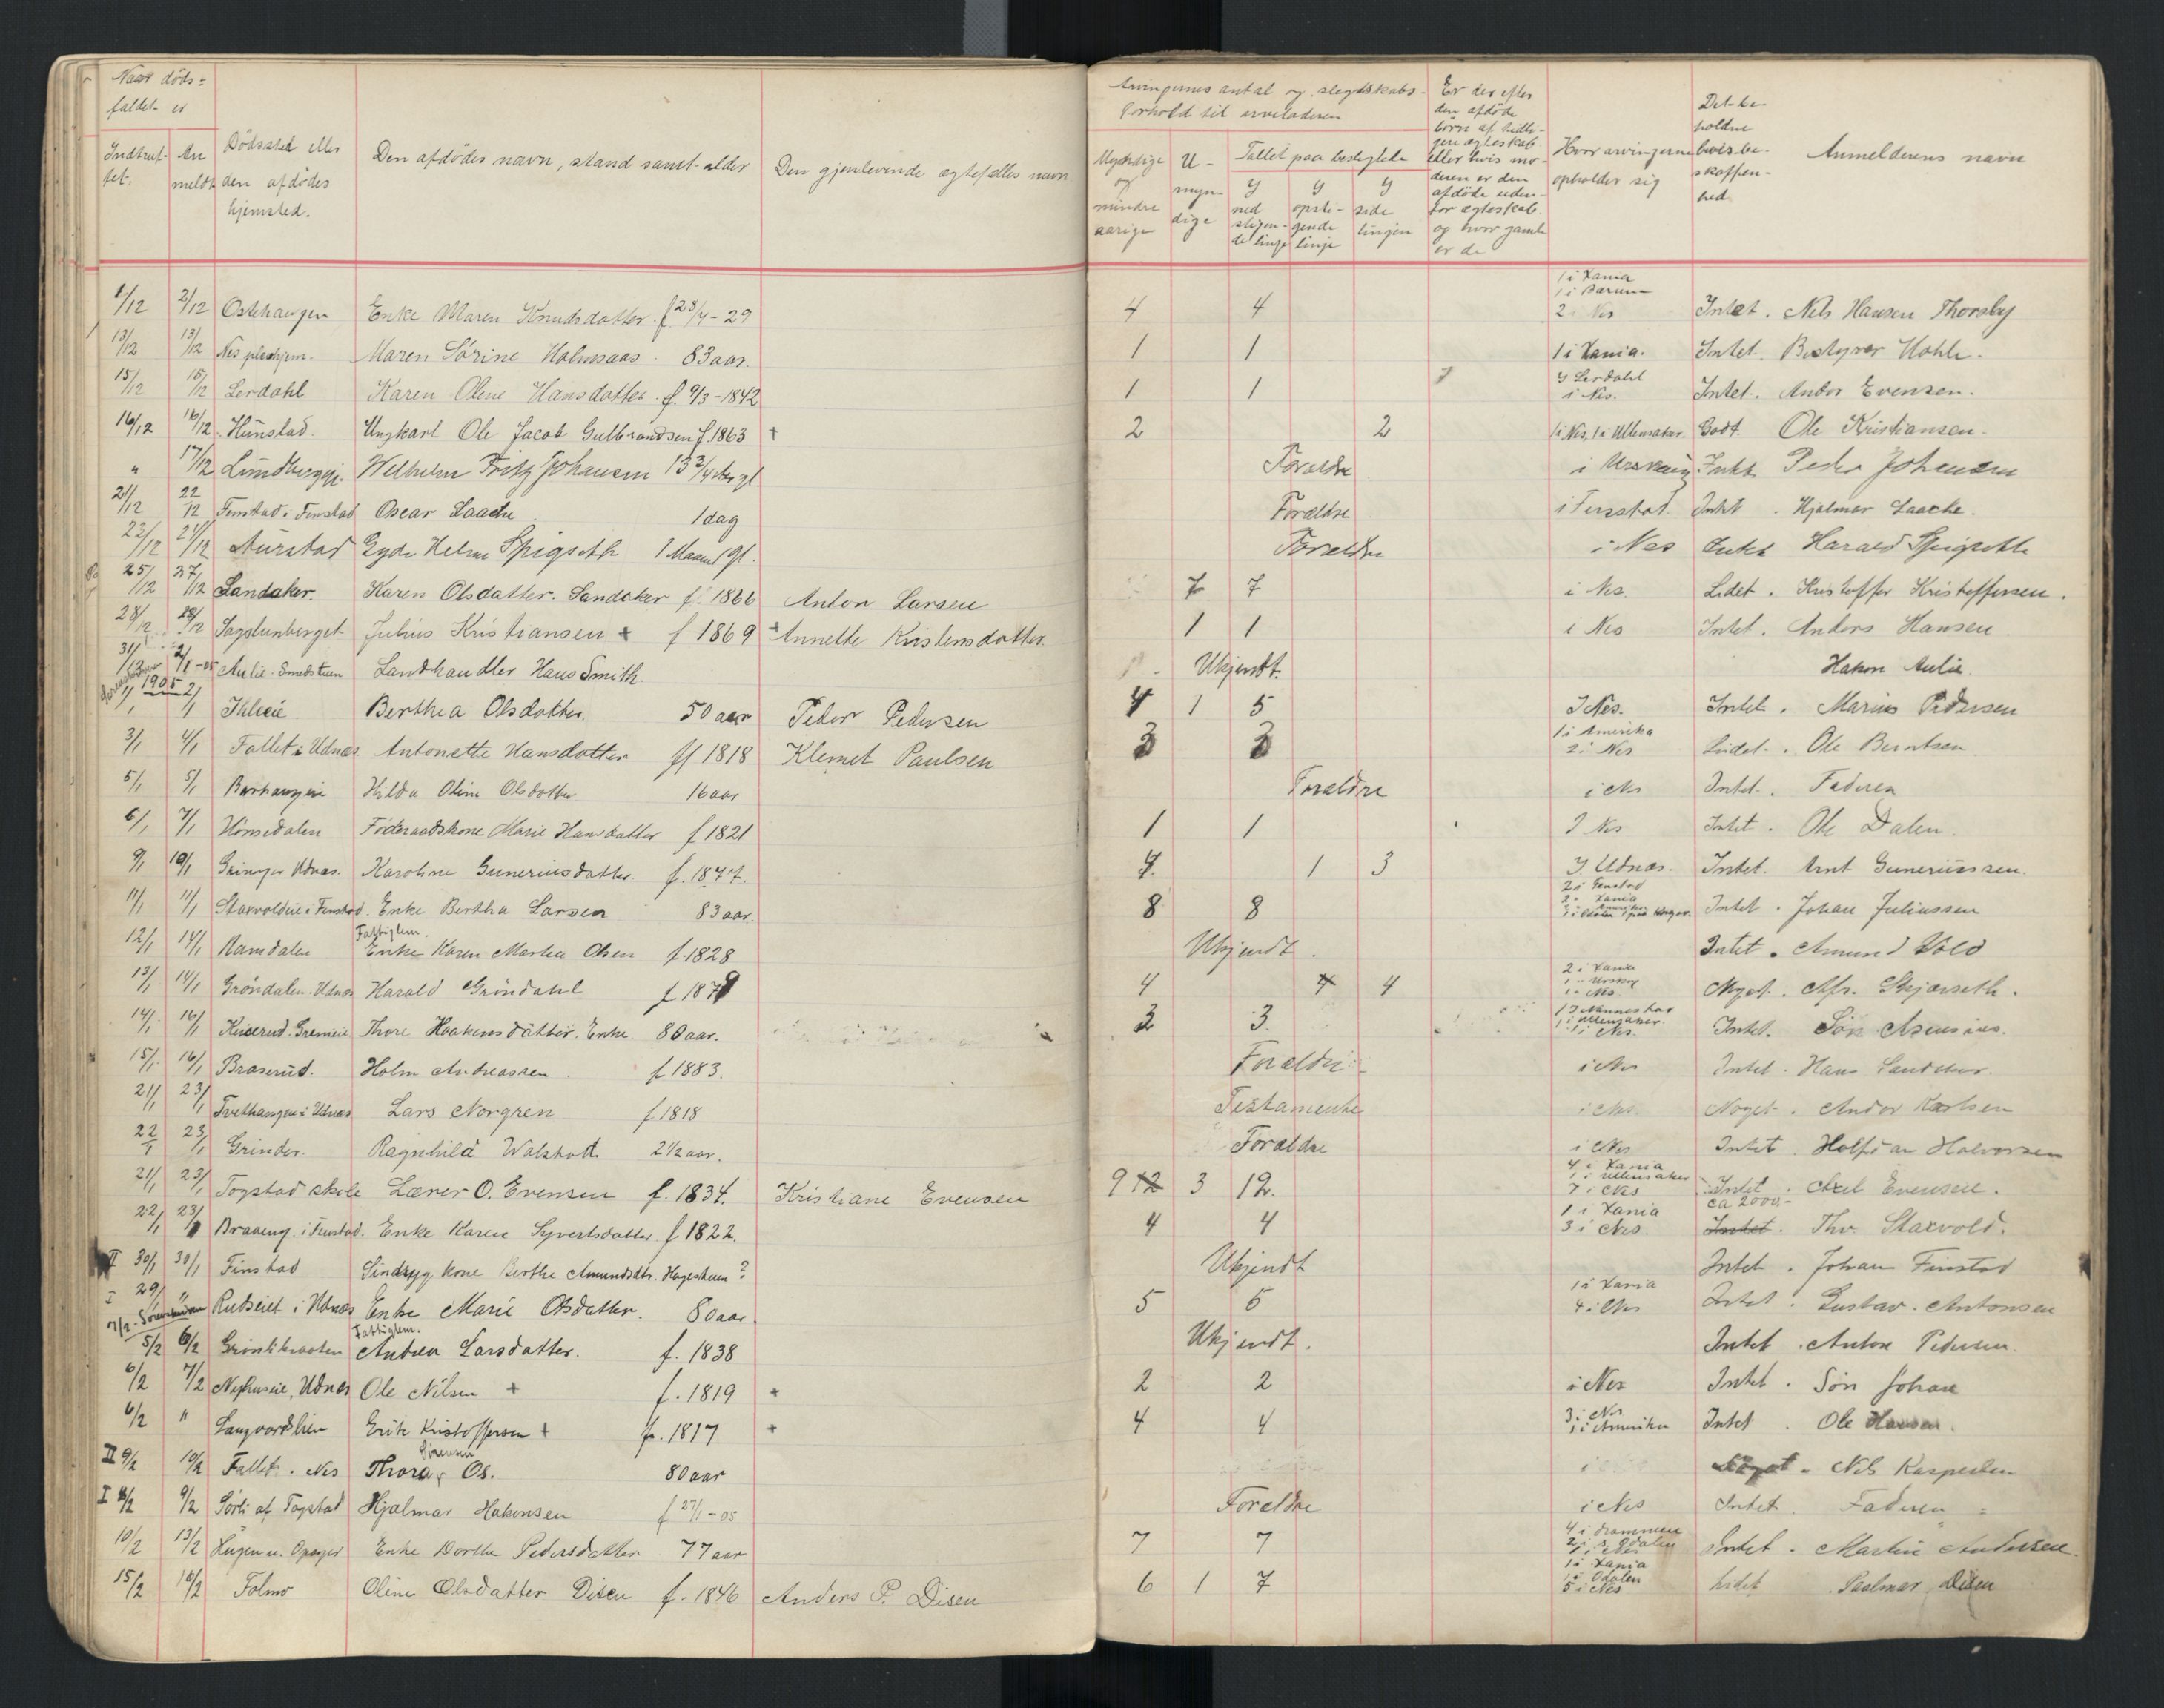 Naar döds-
faldet er
Indtruf-
fet.
An
meldt
Dödssted eller
den afdödes
hjemsted.
Den afdödes navn, stand samt alder
Den gjenlevende ægtefælles navn
Arvingernes antal og slegtskabs-
forhold til arveladeren
Myndige
og
mindre
aarige
U-
myn-
dige
Tallet paa beslegtede
I
ned
stigen-
de linje
I
opsti-
gende
linje
I
side
linjen
Er der efter
den afdöde
börn af tidli-
gere ægteskab
eller hvis mo-
deren er den
afdöde uden-
for ægteskab
og hvor gamle
er de
Hvor arvingerne
opholder sig
Det be-
holdne
bois be-
skaffen-
hed
Anmelderens navn
1/12 2/12 Ostehaugen Enke Maren Knudsdatter f 28/4-29 4 4 1 i Xania 1 i Bærum 2 i Nes Intet. Nels Hansen Thorsby
13/12 13/12 Nes pleiehjem. Maren Sörine Holmsaas. 83 aar. 1 1 1 i Xania. Intet. Bestyrer Hohle.
15/12 15/12 Lerdahl Karen Oline Hansdatter. f. 9/3-1842 1 1 I Lerdahl i Nes. Intet. Andor Evensen.
16/12 16/12 Hunstad. Ungkarl Ole Jacob Gulbrandsen f. 1863 + 2 2 1 i Nes, 1 i Ullensaker. Godt. Ole Kristiansen.
" 17/12 Welhelm Fritz Johansen 13 3/4 Forældre i Urskoug Intet Peder Johansen
21/12 22/12 Finstad i Finstad Oscar Laache 1 dag Forældre i Finstad. Intet. Hjalmar Laache.
22/12 Aurstad Gyda Spigseth 1 Maaned gl. Forældre i Nes Intet Harald Spigseth
25/12 27/12 Sandaker. Karen Olsdatter. Sandaker f. 1866 Anton Larsen 7 7 i Nes. Lidet. Kristoffer Kristoffersen.
28/12 28/12 Sagstunberget Julius Kristiansen + f 1869 + Annette Kristensdatter 1 1 i Nes Intet. Anders Hansen
31/12 2/1-05 Aulie. Smedstuen Landhandler Hans Smith. Ukjendt. Hakon Aulie.
1905
1/1 2/1 Ihleeie Berthea Olsdatter. 50 aar Peder Pedersen 4 1 5 I Nes. Intet. Marius Pedersen
3/1 4/1 Fallet i Udnæs Antonette Hansdatter f 1818 Klemet Paulsen 3 3 1 i Amerika 2 i Nes Lidet. Ole Berntsen
5/1 5/1 Hilda Oline Olsdatter 16 aar Forældre i Nes Intet. Faderen
6/1 7/1 Hömsdalen Föderaadskone Marie Hansdatter f 1821 1 1 I Nes Intet. Ole Dalen.
9/1 10/1 Udnæs. Karoline Gunerius datter. f. 1877. 4. 1 3 I Udnæs. Intet. Arnt Gunerius sen.
11/1 11/1 Starvoldeie i Finstad. Enke Bertha Larsen 83 aar. 8 8 2 i Finstad 2 i Xania Intet. Johan Juliussen
12/1 14/1 Ramdalen Fattiglem. Enke Karen Marthea Olsen f. 1828 Ukjendt. Intet. Amund Vold
13/1 14/1 Gröndalen. Udnæs Harald Gröndahl f 1879 4 4 4 2 i Xania 1 - Urskog 1 - Nes. Noget. Skjærseth.
14/1 16/1 Thore Haakensdatter. Enke 80 aar. 3 3. 1 i Ullensaker. 1 i Nes. Intet. Sön Asmus
15/1 16/1 Braserud. Holm Andreassen. f 1883. Forældre i Nes Intet. Hans
21/1 23/1 Tvethaugen i Udnæs Lars Norgren f 1818 Testamente i Nes. Noget. Andor Karlsen
22/1 23/1 Grinder. Ragnhild Walstad 2 1/2 aar. Forældre i Nes Intet. Halvorsen
21/1 23/1 Togstad skole Lærer O. Evensen f. 1834. Kristiane Evensen 9 12 3 12. 4 i Xania 1 i Ullensaker 7 i Nes Intet. ca 2000,- Axel Evensen.
22/1 23/1 Braaeng. i Finstad. Enke Karen Syvertsdatter f 1822. 4 4 1 i Xania 3 i Nes. Intet. Thv. Starvold.
II 30/1 30/1 Finstad Sindssyg kone Berthe Amundsdtr. Hagestuen? Ukjendt Intet. Johan Finstad
I 29/1 " Rudseiet i Udnæs Enke Marie Olsdatter. 80 aar. 5 5 1 i Xania 4 i Nes Intet. Gustav. Antonsen
5/2 6/2 Fattiglem. Andrea Larsdatter. f. 1838 Ukjendt. Intet. Anton Pedersen.
6/2 7/2 Nyhuseie, Udnæs Ole Nilsen + f. 1819 + 2 2 i Nes Intet. Sön Johan
6/2 " Erik Kristoffersen + f. 1817 + 4 4 3 i Nes 1 i Amerika Intet. Ole Hansen.
II 9/2 10/2 Fallet. Nes Thora Os. 80 aar Noget. Nils Kaspersen
I 8/2 9/2 Sörli af Togstad Hjalmar Hakonsen f 27/1-05 Forældre i Nes Intet. Faderen
10/2 13/2 Enke Dorthe Pedersdatter 77 aar 7 7 4 i Drammen Intet. Martin Andersen.
15/2 16/2 Folmo Oline Olsdatter Disen f. 1846 Anders P. Disen 6 1 7 1 i Xania 1 i Odalen 5 i Nes Lidet Paalmar Disen